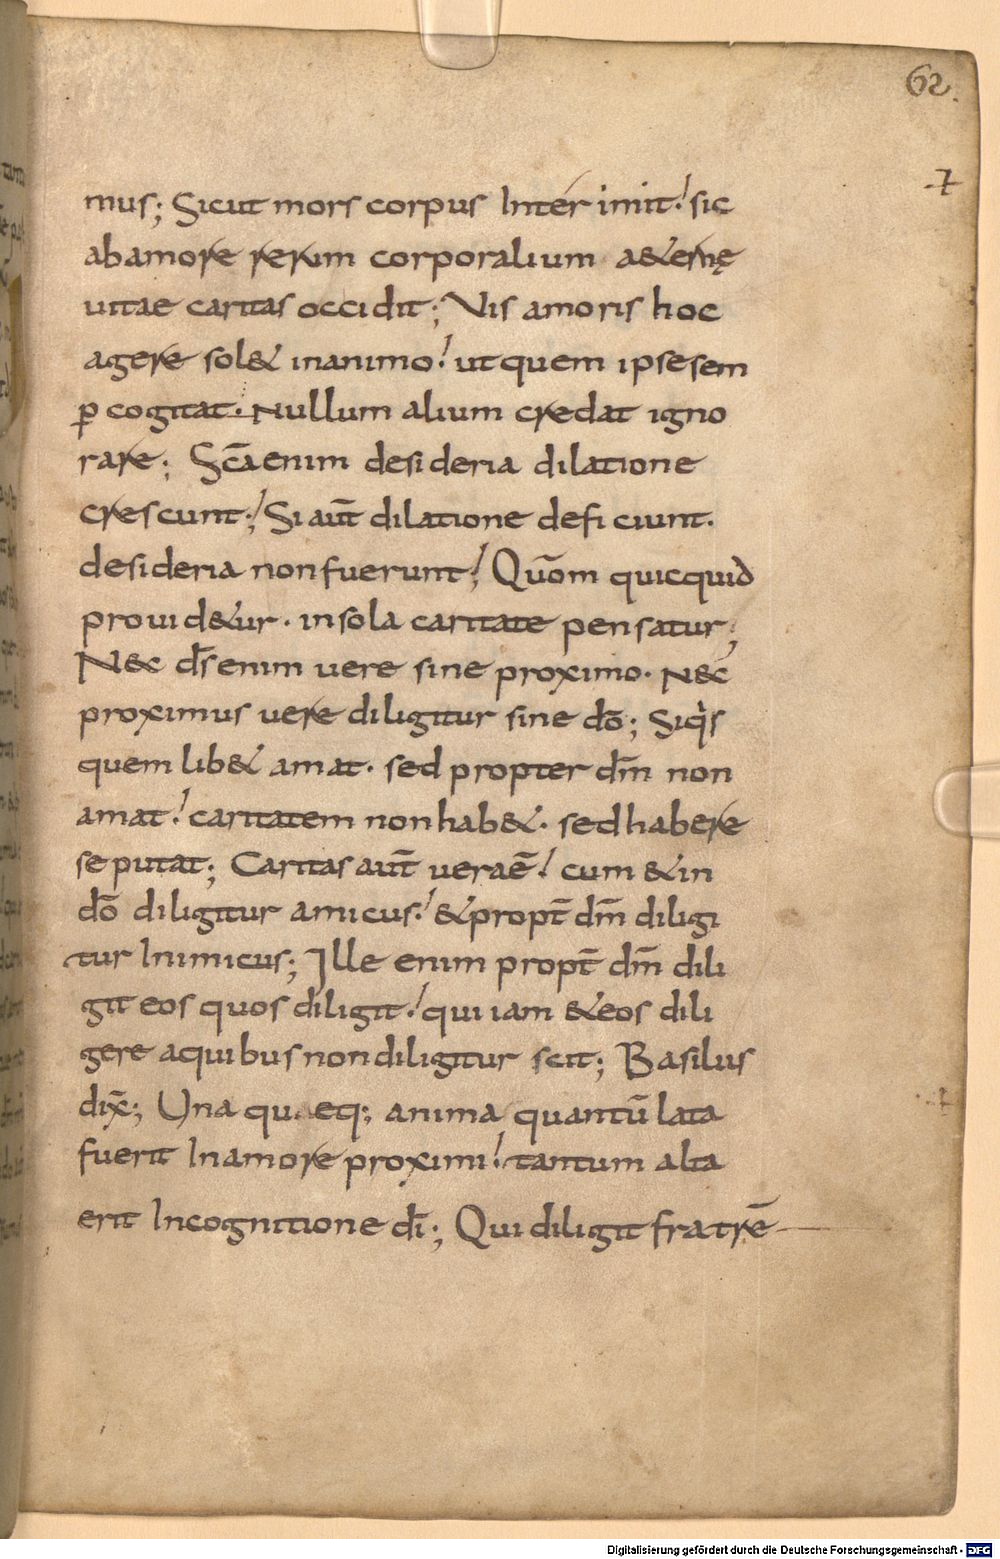 62.
mus; Sicut mors corpus Interimit; sic
ab amore rerum corporalium a&ernę
uitae caritas occidit; Vis amoris hoc
agere sol& in animo; ut quem ipse sem
ꝑ cogitat. Nullum alium credat igno
rare; Sc̄a enim desideria dilatione
crescunt; Si aut̄ dilatione deficiunt.
desideria non fuerunt; Qūom quicquid
prouid&ur. in sola caritate pensatur;
N&c d̄s enim uere sine proximo. N&c
proximus uere diligitur sine dō; Siq̇s
quem lib& amat. sed propter dm̄ non
amat; caritatem non hab&. sed habere
se putat; Caritas aut̄ uera ē; cum & in
dō diligitur amicus; & propt̄ dm̄ diligi
tur Inimicus; Ille enim propt̄ dm̄ dili
git eos quos diligit; qui iam & eos dili
gere a quibus non diligitur scit; Basilius
dix̄; Una quaeq; anima quantū lata
fuerit In amore proximi; tantum alta
erit In cognitione dī; Qui diligit fratrē
Digitalisierung gefördert durch die Deutsche Forschungsgemeinschaft - DFG